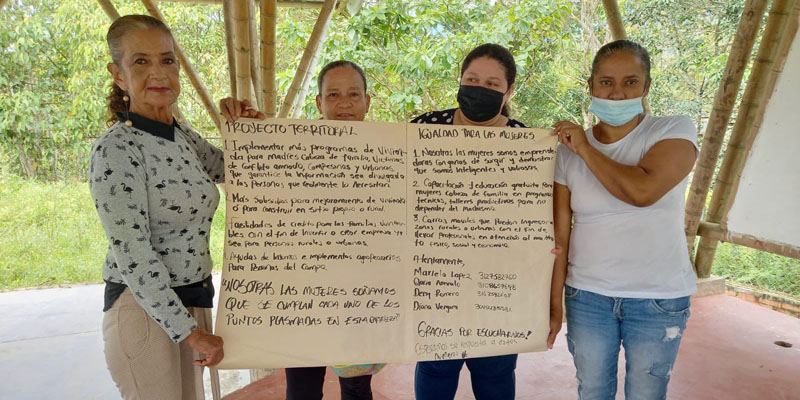 PROYECTO TERRITORIAL
1. Implementar más programas de Vivien-
da para madres cabeza de familia, Victimas
de Conflicto armado, Campesinas y Urbanas,
que garantice la información sea divulgada
a las Personas que realmente lo Necesitan.
Mas Subsidios para mejoramiento de Vivienda
o para construir en sitio propio o rural.
Facilidades de Credito para las familias Vulnera-
bles con el fin de Invertir o crear empresa ya
sea para Personas rurales o urbanas.
Ayudas de Insumos e implementos agropecuarios
Para Personas del Campo.
¡NOSOTRAS LAS MUJERES SOÑAMOS
QUE SE CUMPLAN CADA UNO DE LOS
PUNTOS PLASMADOS EN ESTA
IGUALDAD PARA LAS MUJERES
1. Nosotras las mujeres somos emprende-
doras Con ganas de surgir y demostrar
que somos Inteligentes y Valiosas.
2. Capacitación y educación gratuita Para
mujeres cabeza de familia en programas
técnicos, talleres productivos para no
depender del machismo.
3. Carros moviles que Puedan Ingresar a
Zonas rurales o urbanas con el fin de
llevar Profesionales en atención al maltra-
to físico, social y economico.
Atentamente,
Mariela Lopez
Deny Romero
Diana Vergara
GRACIAS POR ESCUCHARNOS!